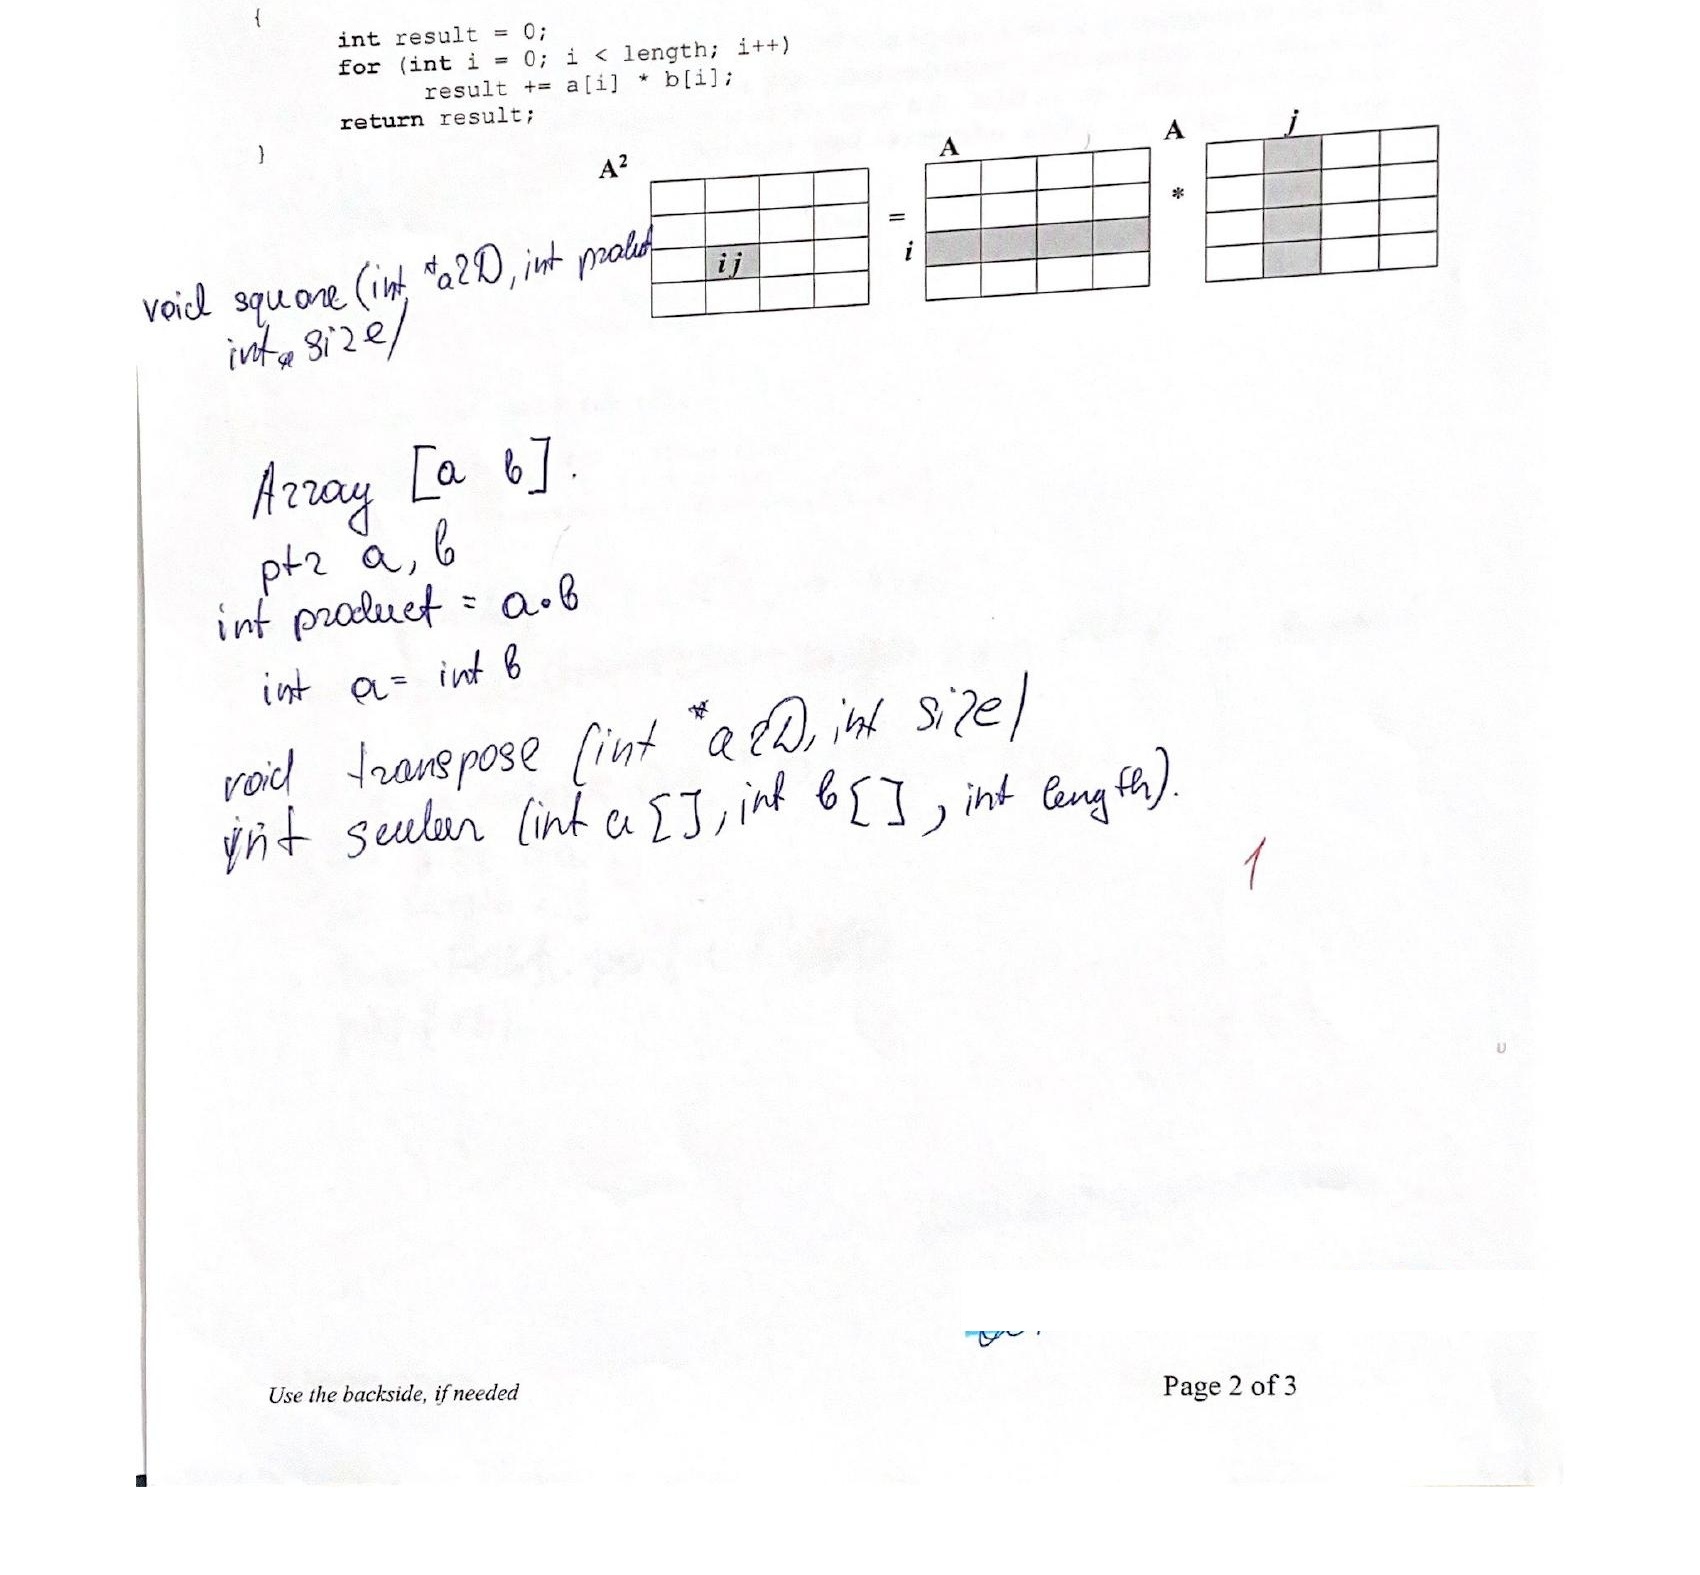 {
int result = 0;
for (int i = 0; i < length; i++)
result += a[i] * b[i];
return result;
}
A² = A * A
j
i
ij
void square (int *a2D, int
int size)
Array [a b].
ptr a, b
int product = a∘b
int a = int b
void transpose (int *a2D, int size)
int (int a[], int b[], int length).
1
Use the backside, if needed
Page 2 of 3